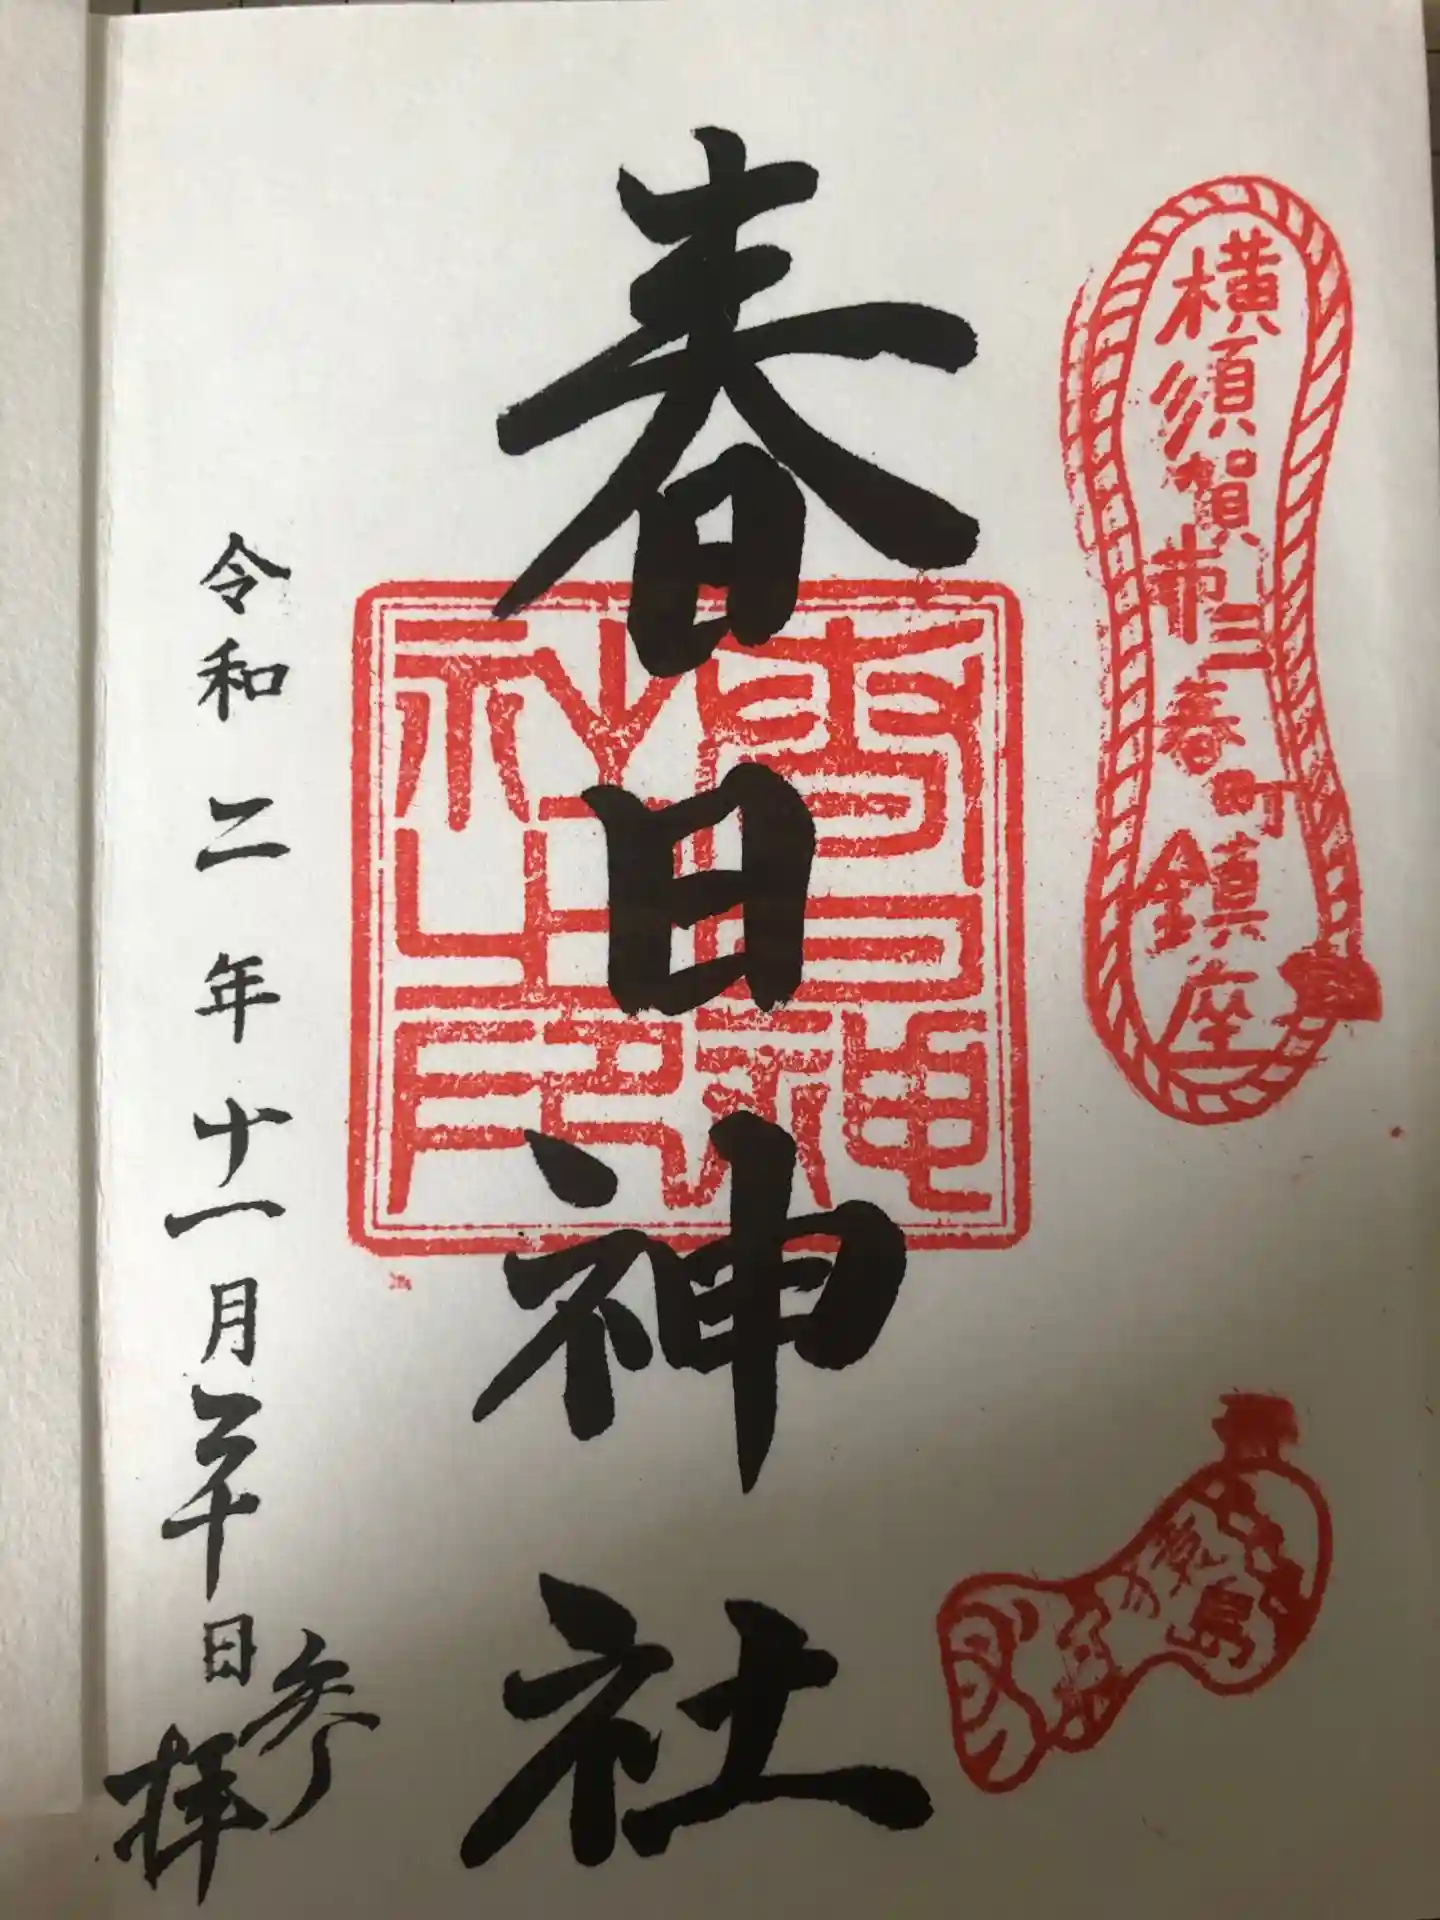 横須賀市三春町鎮座
猿島
春日神社
春日神社之印
令和二年十一月二十日
参拝